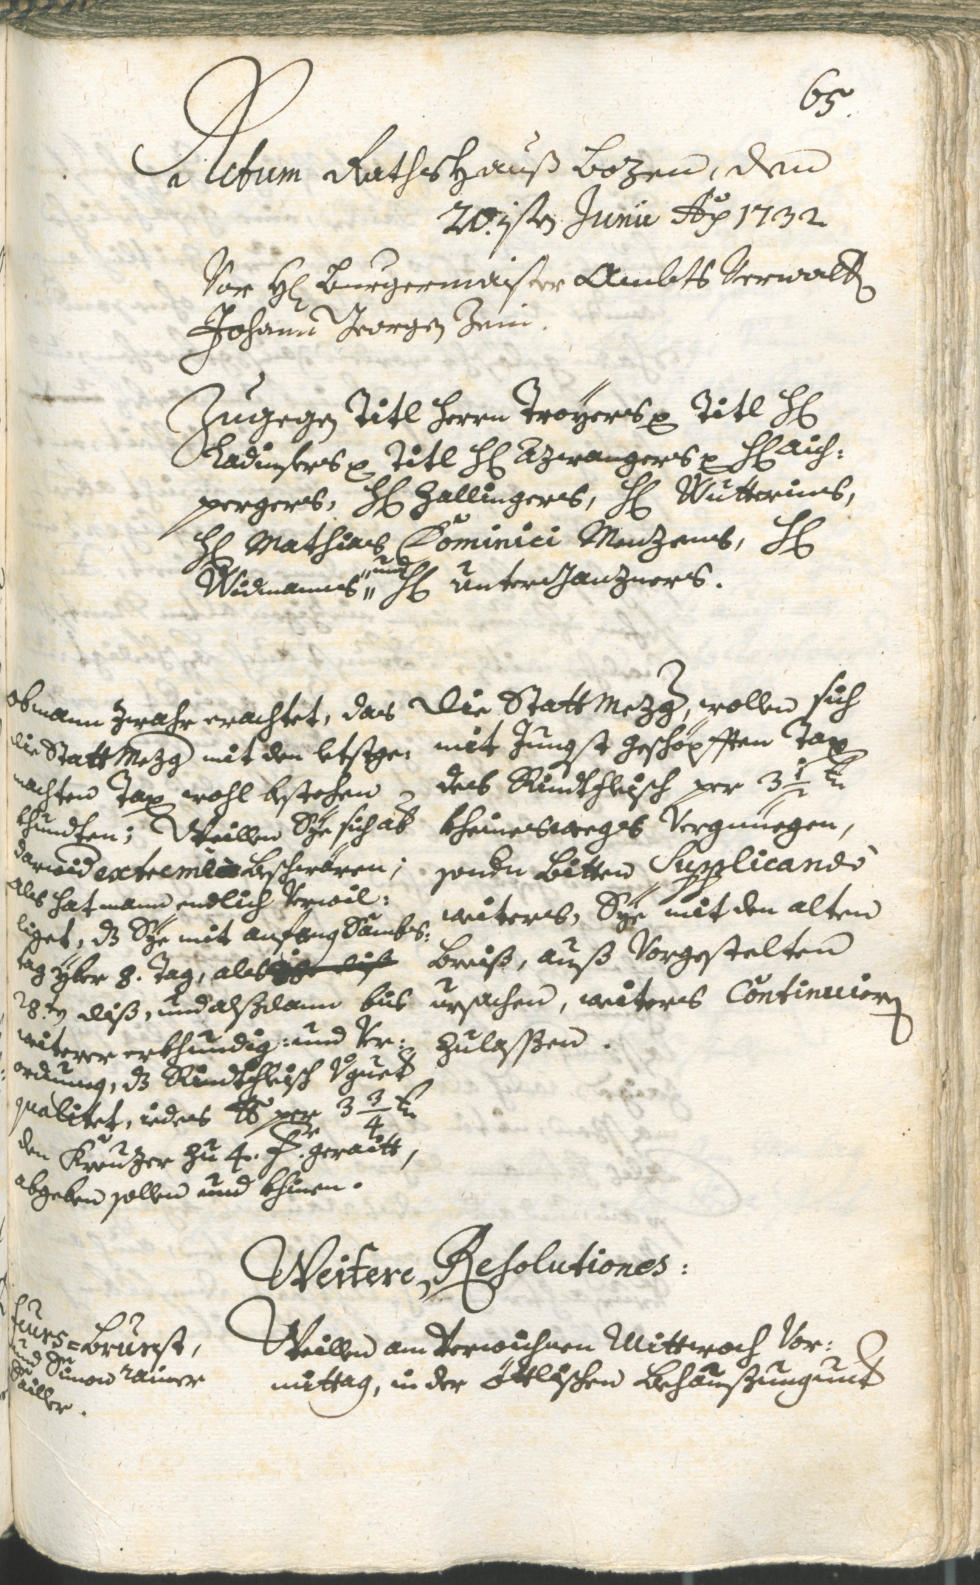 65.
Actum Rathshauß Bozen, den
20.isten Junii Ao 1732
Vor Hl Burgermaister Ambts Verwalter
Johann Georgen Zein.
Zugegen Titl Herrn Troyers p Titl Hl
Kadinsters p Titl Hl Azwangers p Hl Aich:
pergers, Hl Zallingers, Hl Mutterins,
Hl Mathias Dominici Menzens, Hl
Widmanns „und“ Hl Unterchanzners.
Die Statt Mezg, wollen sich
mit Jungst geschöpfften Tax
des Rindtfleisch per 3 1/2 kr
kheineswegs Vergnuegen,
sondern bitten Supplicando
weiters, Sye mit den alten
breiß, auß Vorgestelten
ursachen, weiters Continuiern
zulassen.
obmann zwahr erachtet, das
die Statt Mezg mit den letstge:
machten Tax wohl bestehen
khundten; Weillen Sye sich ab
darwid extreme beschwären;
als hat mann endlich Verwil:
liget, dz Sye mit anfang Sambs:
tag yber 8. Tag, als
28.ten diß, und alßdann bis
weiterer erkhundig: und Ver:
ordnung, dz Rindtfleisch Vguet
qualitet, iedes lb per 3 3/4 kr
den Kreuzer zu 4. fr. geraitt,
abgeben sollen und khinen.
Weitere Resolutiones:
feurs=Brunst,
und Simon Rainer
Sailler.
Weillen am Verwichnen Mittwoch Vor:
mittag, in der Öttlischen Behaussung unt